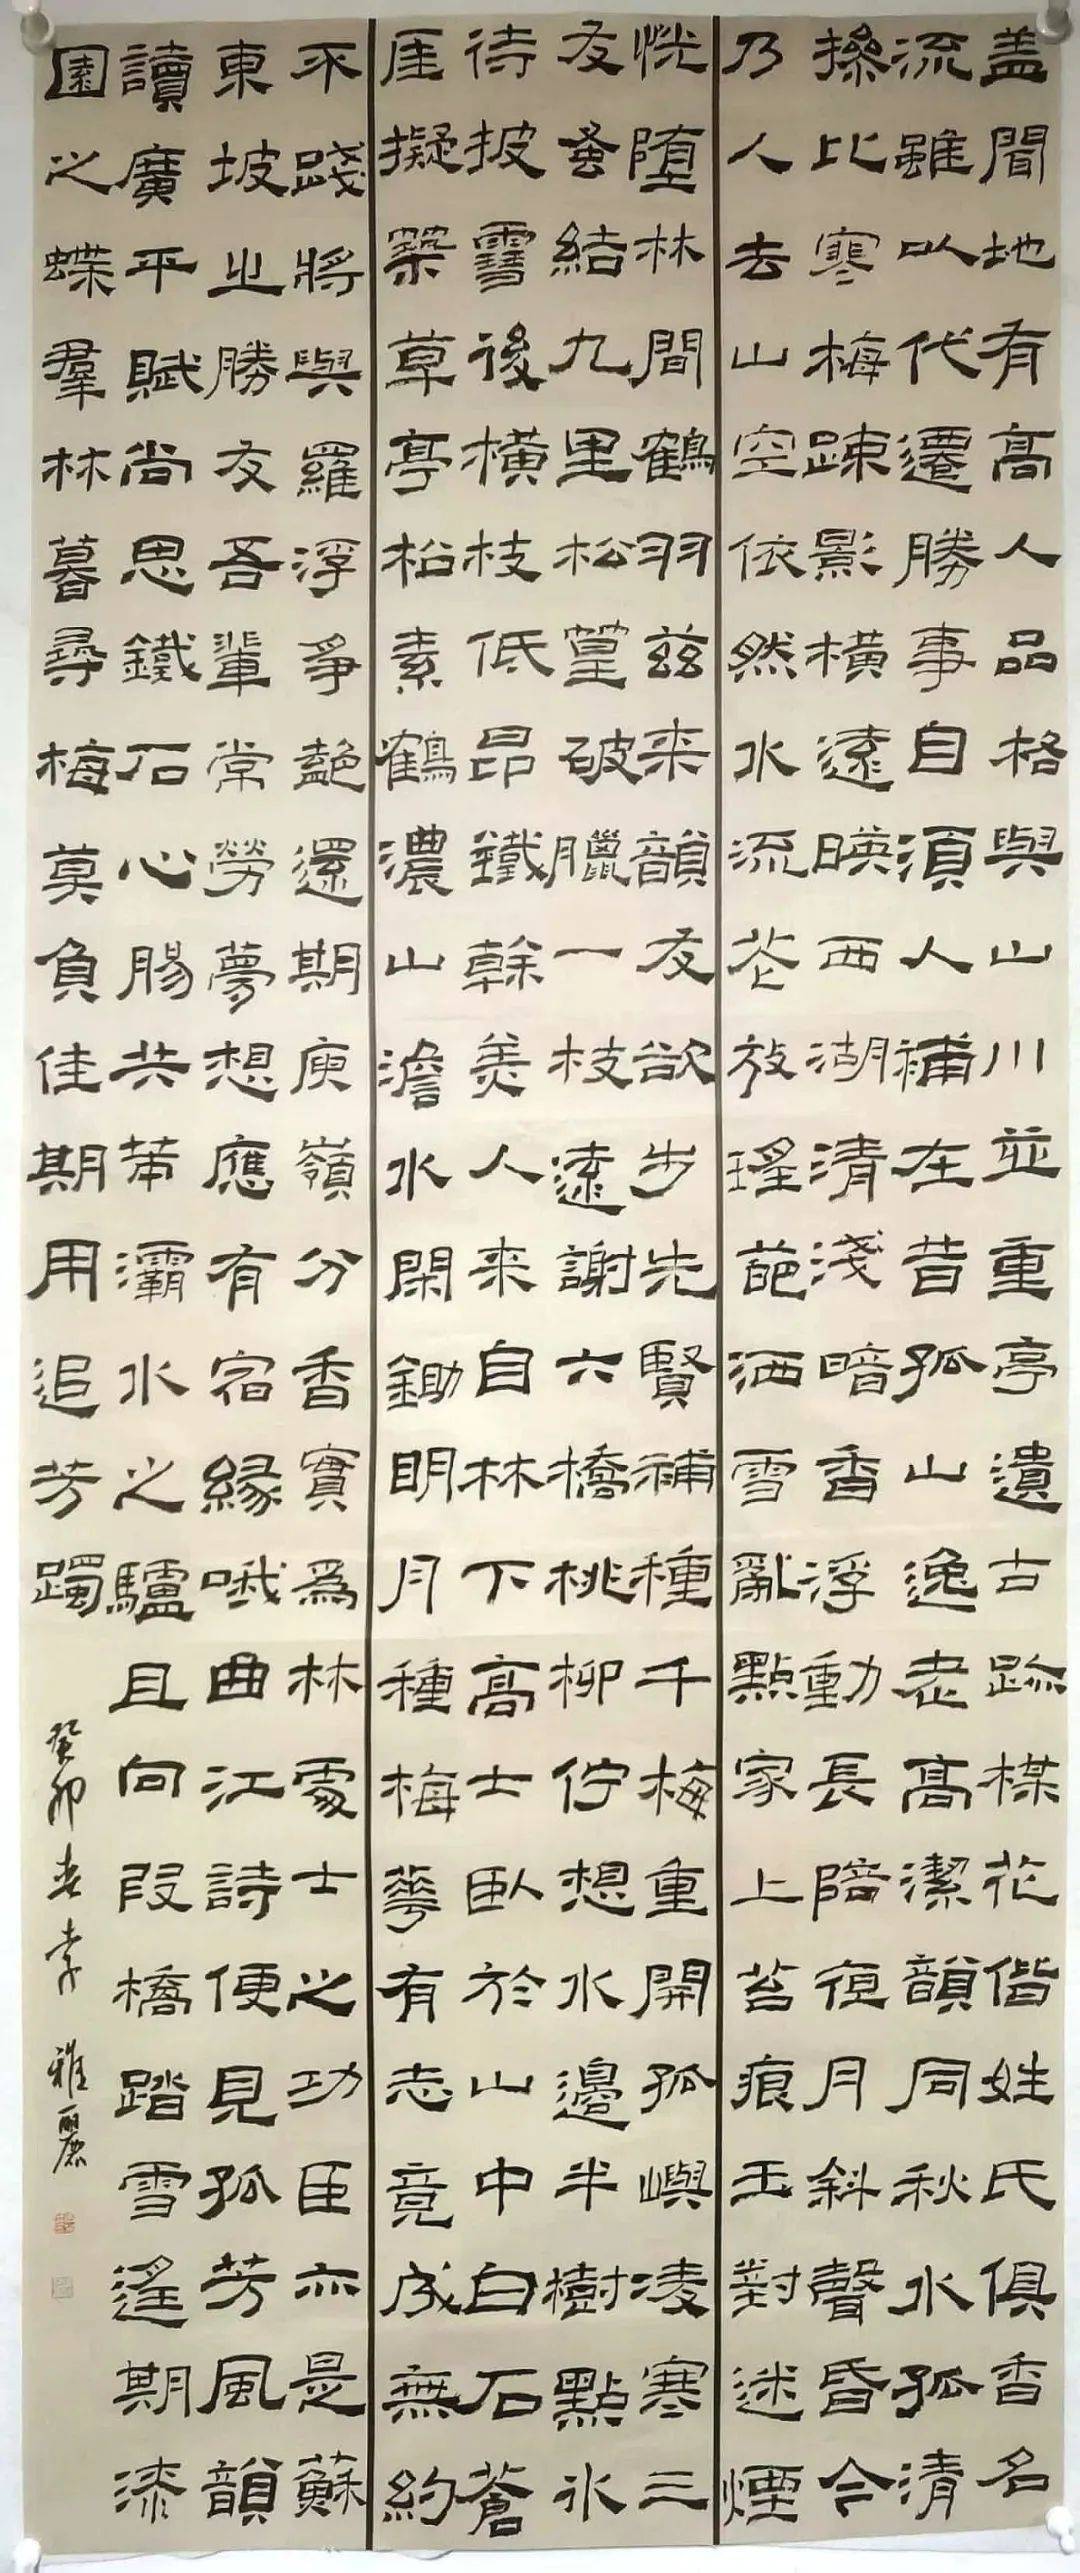 盖聞地有高人品格與山川並重亭遺古跡楳花偕姓氏俱香名
流雖以代遷勝事自須人補在昔孤山逸老高潔韻同秋水孤清
操比寒梅踈影橫遠暎西湖清淺暗香浮動長陪夜月斜聲昏今
乃人去山空依然水流花放瑤葩洒雪亂點家上苔痕玉對迷煙
恍墮林間鶴羽兹来韻友欲步先賢補種千梅重開孤嶼凌寒三
友蚤結九里松篁破臘一枝遠謝六橋桃柳佇想水邊半樹點氷
待披雪後橫枝低昂鐵榦美人来自林下高士臥於山中白石蒼
厓擬築草亭松素鶴濃山澹水閑鋤明月種梅華有志竟成無約
不踐將與羅浮爭艶還期庾嶺分香實為林處士之功臣亦是蘇
東坡之勝友吾輩常勞夢想應有宿緣哦曲江詩便見孤芳風韻
讀廣平賦尚思鐵石心腸共策灞水之驢且向段橋踏雪遥期漆
園之蝶羣林暮尋梅莫負佳期用追芳躅
癸卯春李雅麗